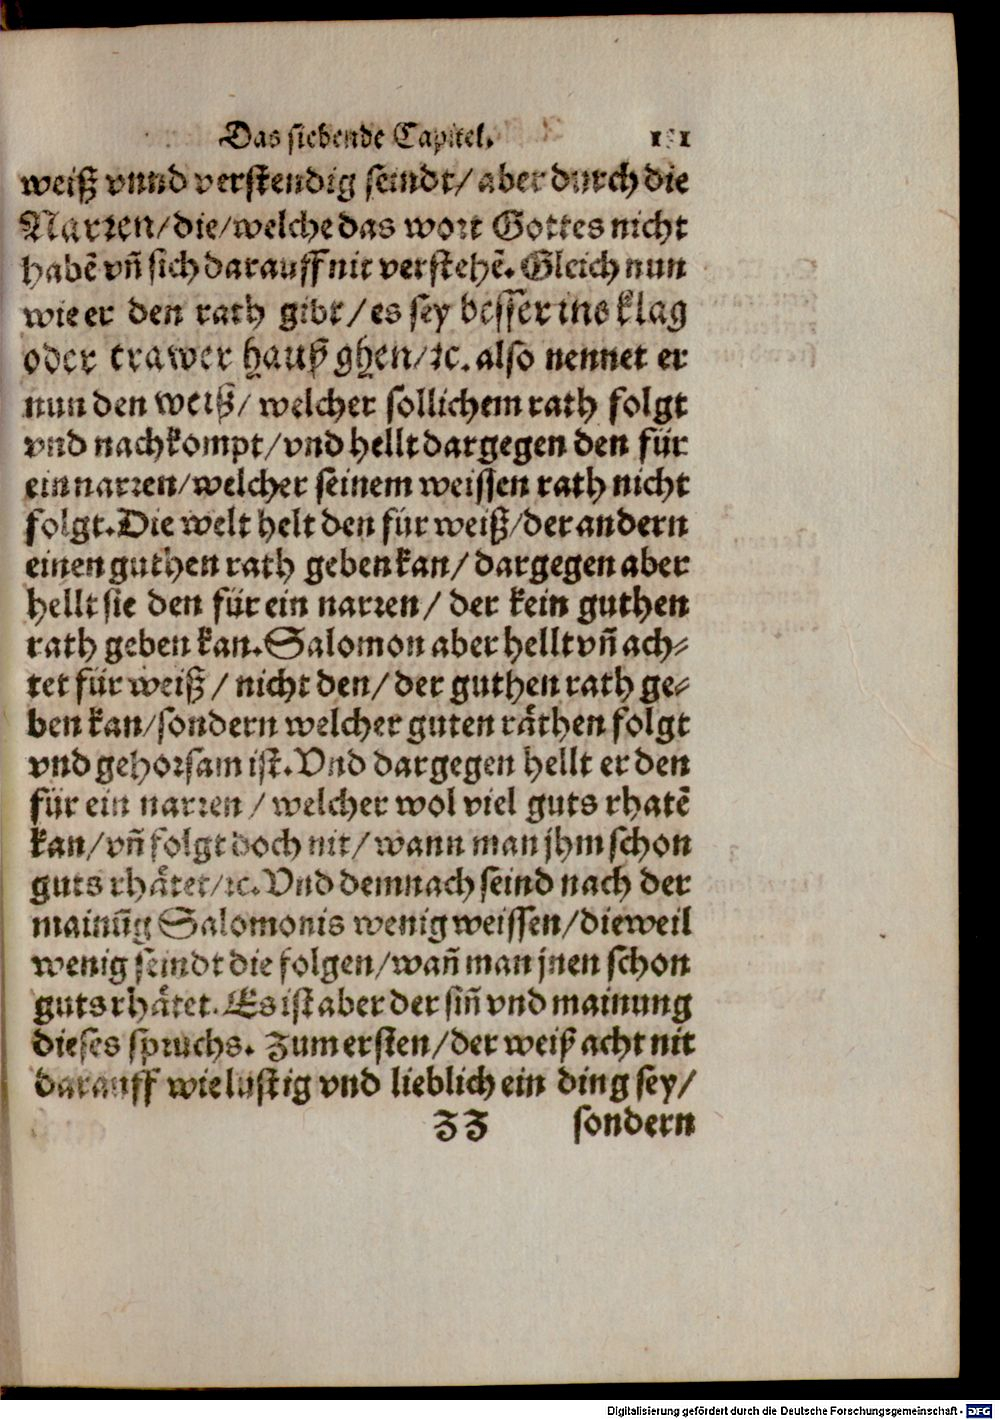 Das siebende Capitel.
weiß vnnd verstendig seindt/ aber durch die
Narren/die/welche das wort Gottes nicht
habẽ vñ sich darauff nit verstehẽ. Gleich nun
wie er den rath gibt/ es sey besser ins klag
oder trawer hauß ghen/ꝛc. also nennet er
nun den weiß/ welcher sollichem rath folgt
vnd nachkompt/vnd hellt dargegen den für
ein narren/welcher seinem weissen rath nicht
folgt. Die welt helt den für weiß/der andern
einen guthen rath geben kan/ dargegen aber
hellt sie den für ein narren/ der kein guthen
rath geben kan. Salomon aber hellt vñ ach⸗
tet für weiß/ nicht den/ der guthen rath ge⸗
ben kan/sondern welcher guten råthen folgt
vnd gehorsam ist. Vnd dargegen hellt er den
für ein narren/ welcher wol viel guts rhatẽ
kan/vñ folgt doch nit/ wann man jhm schon
guts rhåtet/ꝛc. Vnd demnach seind nach der
mainũg Salomonis wenig weissen/dieweil
wenig seindt die folgen/wañ man jnen schon
guts rhåtet. Es ist aber der siñ vnd mainung
dieses spruchs. Zum ersten/der weiß acht nit
darauff wie lustig vnd lieblich ein ding sey/
ZZ sondern
Digitalisierung gefördert durch die Deutsche Forschungsgemeinschaft - DFG